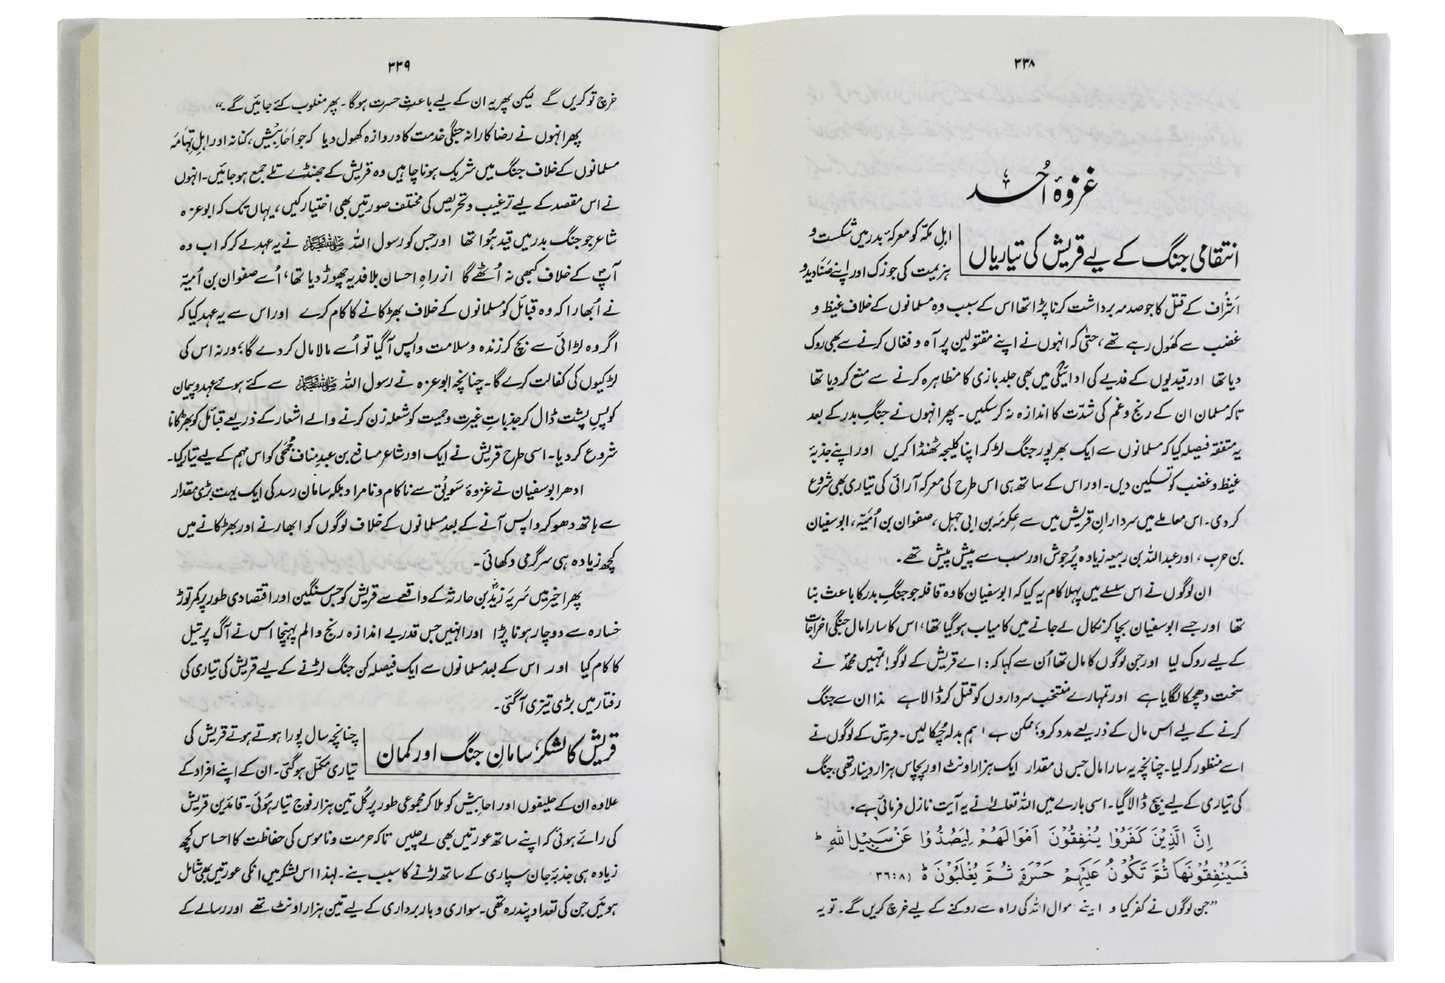 ۳۳۸
غزوۂ اُحد
انتقامی جنگ کے لیے قریش کی تیاریاں
اہلِ مکہ کو معرکۂ بدر میں شکست و
ہزیمت کی جو زک اور اپنے صَنَادید و
اَشراف کے قتل کا جو صدمہ برداشت کرنا پڑا تھا اس کے سبب وہ مسلمانوں کے خلاف غیظ و
غضب سے کھَول رہے تھے، حتیٰ کہ انہوں نے اپنے مقتولین پر آہ و فغاں کرنے سے بھی روک
دیا تھا اور قیدیوں کے فدیے کی ادائیگی میں بھی جلد بازی کا مظاہرہ کرنے سے منع کر دیا تھا
تاکہ مسلمان ان کے رنج و غم کی شدّت کا اندازہ نہ کر سکیں۔ پھر انہوں نے جنگِ بدر کے بعد
یہ متفقہ فیصلہ کیا کہ مسلمانوں سے ایک بھرپور جنگ لڑ کر اپنا کلیجہ ٹھنڈا کریں اور اپنے جذبۂ
غیظ و غضب کو تسکین دیں۔ اور اس کے ساتھ ہی اس طرح کی معرکہ آرائی کی تیاری بھی شروع
کر دی۔ اس معاملے میں سردارانِ قریش میں سے عِکرِمَہ بن ابی جہل، صفوان بن اُمَیّہ، ابوسفیان
بن حرب، اور عبداللہ بن ربیعہ زیادہ پُرجوش اور سب سے پیش پیش تھے۔
ان لوگوں نے اس سلسلے میں پہلا کام یہ کیا کہ ابوسفیان کا وہ قافلہ جو جنگِ بدر کا باعث بنا
تھا اور جسے ابوسفیان بچا کر نکال لے جانے میں کامیاب ہو گیا تھا، اس کا سارا مال جنگی اخراجات
کے لیے روک لیا اور جن لوگوں کا مال تھا اُن سے کہا کہ: اے قریش کے لوگو! تمہیں محمدؐ نے
سخت دھچکا لگایا ہے اور تمہارے منتخب سرداروں کو قتل کر ڈالا ہے لہذا ان سے جنگ
کرنے کے لیے اس مال کے ذریعے مدد کرو؛ ممکن ہے ہم بدلہ چُکا لیں۔ قریش کے لوگوں نے
اسے منظور کر لیا۔ چنانچہ یہ سارا مال جس کی مقدار ایک ہزار اونٹ اور پچاس ہزار دینار تھی، جنگ
کی تیاری کے لیے بیچ ڈالا گیا۔ اسی بارے میں اللہ تعالےٰ نے یہ آیت نازل فرمائی ہے۔
اِنَّ الَّذِيْنَ كَفَرُوْا يُنْفِقُوْنَ اَمْوَالَهُمْ لِيَصُدُّوْا عَنْ سَبِيْلِ اللهِ ؕ
فَسَيُنْفِقُوْنَهَا ثُمَّ تَكُوْنُ عَلَيْهِمْ حَسْرَةً ثُمَّ يُغْلَبُوْنَ ؕ (۳۶:۸)
"جن لوگوں نے کفر کیا وہ اپنے اموال اللہ کی راہ سے روکنے کے لیے خرچ کریں گے۔ تو یہ
۳۳۹
خرچ تو کریں گے لیکن پھر یہ ان کے لیے باعثِ حسرت ہوگا۔ پھر مغلوب کئے جائیں گے۔"
پھر انہوں نے رضاکارانہ جنگی خدمت کا دروازہ کھول دیا کہ جو اَحَابِیْش، کنانہ اور اہلِ تِہَامَہ
مسلمانوں کے خلاف جنگ میں شریک ہونا چاہیں وہ قریش کے جھنڈے تلے جمع ہو جائیں۔ انہوں
نے اس مقصد کے لیے ترغیب و تحریص کی مختلف صورتیں بھی اختیار کیں، یہاں تک کہ ابو عزہ
شاعر جو جنگ بدر میں قید ہُوا تھا اور جس کو رسول اللہ ﷺ نے یہ عہد لے کر کہ اب وہ
آپؐ کے خلاف کبھی نہ اُٹھے گا ازراہِ احسان بلا فدیہ چھوڑ دیا تھا، اُسے صفوان بن اُمیّہ
نے اُبھارا کہ وہ قبائل کو مسلمانوں کے خلاف بھڑکانے کا کام کرے اور اس سے یہ عہد کیا کہ
اگر وہ لڑائی سے بچ کر زندہ و سلامت واپس آ گیا تو اُسے مالا مال کر دے گا؛ ورنہ اس کی
لڑکیوں کی کفالت کرے گا۔ چنانچہ ابو عزہ نے رسول اللہ ﷺ سے کئے ہوئے عہد و پیمان
کو پسِ پشت ڈال کر جذباتِ غیرت و حمیت کو شعلہ زن کرنے والے اشعار کے ذریعے قبائل کو بھڑکانا
شروع کر دیا۔ اسی طرح قریش نے ایک اور شاعر مسافع بن عبد مناف جُمَحِی کو اس مہم کے لیے تیار کیا۔
ادھر ابوسفیان نے غزوۂ سَوِیْق سے ناکام و نامراد بلکہ سامانِ رسد کی ایک بہت بڑی مقدار
سے ہاتھ دھو کر واپس آنے کے بعد مسلمانوں کے خلاف لوگوں کو ابھارنے اور بھڑکانے میں
کچھ زیادہ ہی سرگرمی دکھائی۔
پھر اخیر میں سَرِیّہ زیدؓ بن حارثہ کے واقعے سے قریش کو جس سنگین اور اقتصادی طور پر کمر توڑ
خسارہ سے دوچار ہونا پڑا اور انہیں جس قدر بے اندازہ رنج و الم پہنچا اس نے آگ پر تیل
کا کام کیا اور اس کے بعد مسلمانوں سے ایک فیصلہ کن جنگ لڑنے کے لیے قریش کی تیاری کی
رفتار میں بڑی تیزی آ گئی۔
قریش کا لشکر، سامانِ جنگ اور کمان
چنانچہ سال پورا ہوتے ہوتے قریش کی
تیاری مکمل ہو گئی۔ ان کے اپنے افراد کے
علاوہ ان کے حلیفوں اور احابیش کو ملا کر مجموعی طور پر کُل تین ہزار فوج تیار ہوئی۔ قائدینِ قریش
کی رائے ہوئی کہ اپنے ساتھ عورتیں بھی لے چلیں تاکہ حرمت و ناموس کی حفاظت کا احساس کچھ
زیادہ ہی جذبۂ جان سپاری کے ساتھ لڑنے کا سبب بنے۔ لہٰذا اس لشکر میں انکی عورتیں بھی شامل
ہوئیں جن کی تعداد پندرہ تھی۔ سواری و باربرداری کے لیے تین ہزار اونٹ تھے اور رسالے کے